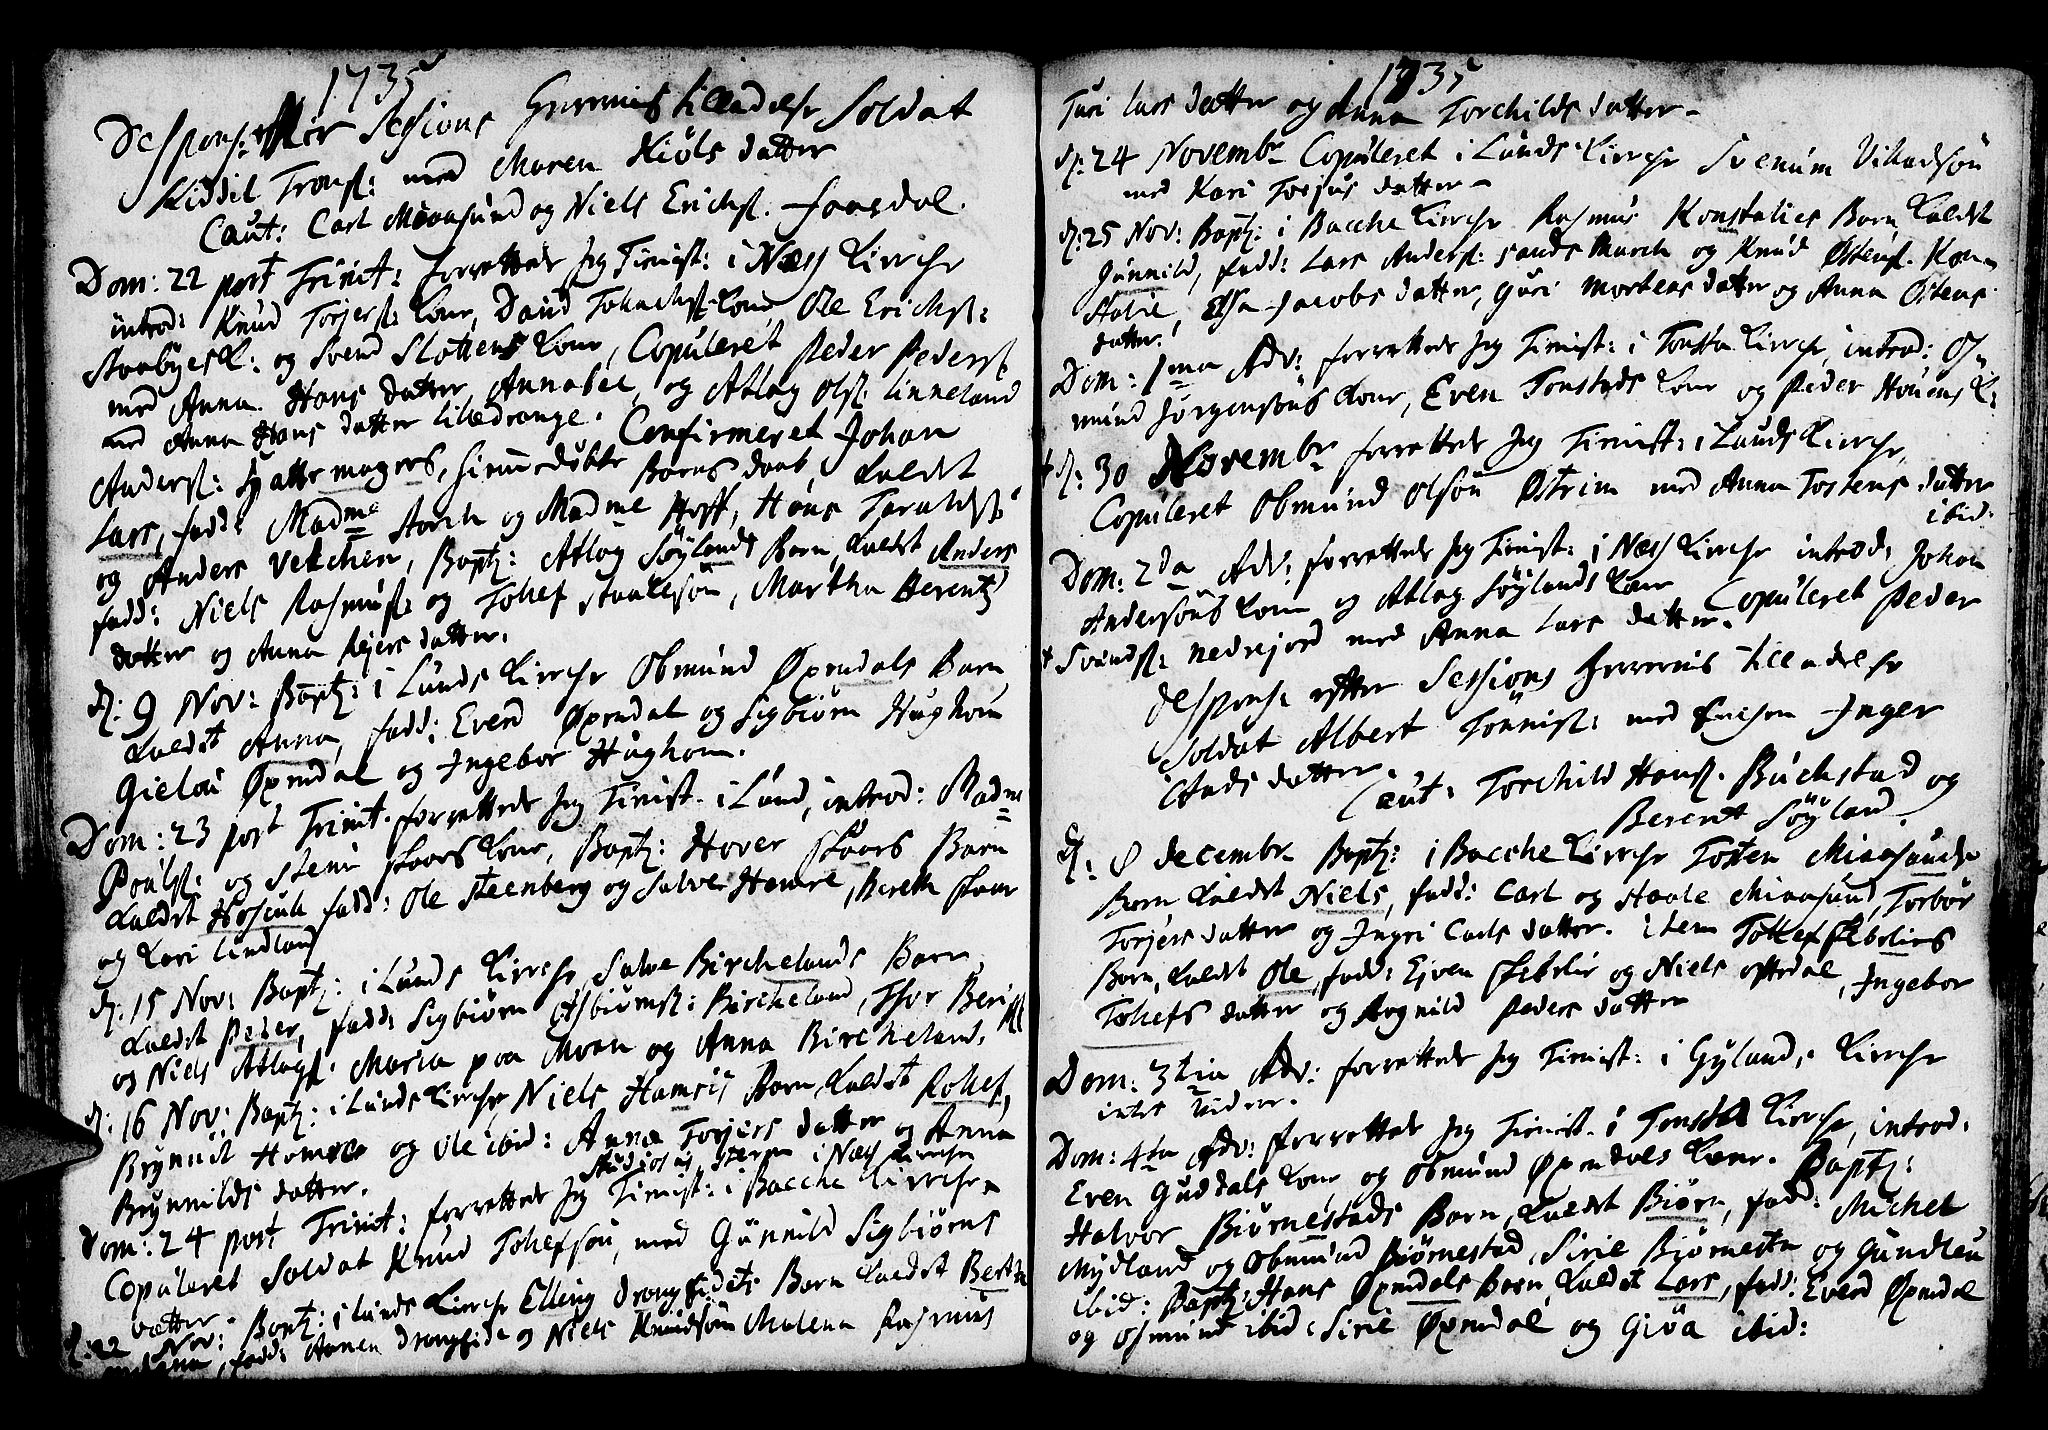 1735
Despons: efter Sessions Skrivernis tilladelse Soldat
Kiddil Tronss: med Maren Niøls datter
Caut: Carl Moeasund og Niels Erichs. Josdal.
Dom: 22 post Trinit: forrettede Jeg Tienist: i Næss Kirche
introd: Knud Torjers: Kone, David Tollachs: Kone Ole Erichs:
Stoabyes K: og Svend Slottens Kone, Copuleret Peder Peders:
med Anna Hans datter Annabel, og Atlag Ols: Linneland
med Anna Hans datter Lilledrange. Confirmeret Johan
Anders: Hattemagers, hiemmedøbte Barns daab, Kaldet
Lars, fadd: Madme Storch og Madme Hoff, Hans Taralds:
og Anders Vetchen, Bapt: Atlag Søylands Barn, Kaldet Anders
fadd: Niels Rasmus: og Tollef Staalesøn, Martha Berentz
datter og Anna Rejers datter.
d: 9 Nov: Bapt: i Lunds Kirche Obmund Øxendals Barn
Kaldet Anna, fadd: Everd Øxendal og Sigbiørn Hughom
Gielou Øxendal og Ingebor Hughom.
Dom: 23 post Trinit. forrettede Jeg Tienist. i Lund, introd: Madme
Pouls: og Steni Skaars Kone, Bapt: Hover Skaars Barn
Kaldet fadd: Ole Steenberg og Salve Hamre, Bereth Skaar
og Kari Lindland
d: 15 Nov: Bapt: i Lunds Kirche Salve Birchelands Barn
Kaldet Peder, fadd: Sigbiørn Asbiørns: Bircheland, Thor
og Niels Atlags: Maria paa Moen og Anna Bircheland.
d: 16 Nov: Bapt: i Lunds Kirche Niels Hamris Barn Kaldet Rollef,
Brynild Hamre og Ole ibid: Anna Torjers datter og Anna
Brynnilds datter.
Studiosus i Næss Kirche
Dom: 24 post Trinit: forrettede Jeg Tienist: i Bacche Kirche
Copuleret Soldat Knud Tollefsøn, med Gunnild Sigbiørns
datter.
d: 22 Nov: Bapt: i Lunds Kirche Elling Drangsidets Barn Kaldet Bertha
fadd: Aanen Drangside og Niels Knudsøn Malena Rasmus
1735
Turi Lars datter og Anna Torchilds datter
d: 24 Novembr Copuleret i Lunds Kirche Svenum Vikadsøn
med Kari Torjus datter
d: 25 Nov: Bapt: i Bacche Kirche Rasmus Konstalies Barn Kaldet
Gunnild, fadd: Lars Anders: Sandsmarch og Knud Østens. Kon=
stalie, Elsa Jacobs datter, Guri Mortens datter og Anna Østens
datter.
Dom: 1ma Adv: forrettede Jeg Tienist: i Tonsta Kirche, introd: Os=
mund Jørgensøns Kone, Even Tonstads Kone og Peder Houens K:
d: 30 Novembr forrettede Jeg Tienist: i Lunds Kirche,
Copuleret Obmund Olsøn Østrim med Anna Tostens datter
ibid.
Dom: 2da Adv: forrettede Jeg Tienist: i Næss Kirche introd: Johan
Andersøns Kone og Atlag Søylands Kone Copuleret Peder
Svends: Nedrejord med Anna Lars datter.
Despons: efter Sessions Skrivernis tilladelse
Soldat Albert Tønnis: med Enchen Inger
Aads datter.
Caut: Torchild Hans. Buchstad og
Berent Søyland
d: 8 Decembr. Bapt: i Bacche Kirche Tosten Moeasunds
Barn Kaldet Niels, fadd: Carl og Staale Moeasund, Torbør
Torjers datter og Ingri Carls datter. Item Tollef Skibelies
Barn, Kaldet Ole, fadd: Ejven Skibelie og Niels Oftedal, Ingebor
Tollefs datter og Ragnild Peders datter
Dom: 3tia Adv: forrettede Jeg Tienist: i Gylands Kirche
intet videre.
Dom: 4ta Adv: forrettede Jeg Tienist. i Tonsta Kirche, introd.
Even Guddals Kone og Obmund Øxendals Kone. Bapt:
Halvor Biørnestads Barn, Kaldet Biørn, fadd: Michel
Mydland og Obmund Biørnestad, Sirie Biørnesta og Gundleu
ibid: Bapt: Hans Øxendals Barn, Kaldet Lars, fadd: Everd Øxendal
og Osmund ibid: Sirie Øxendal og Giøa ibid: